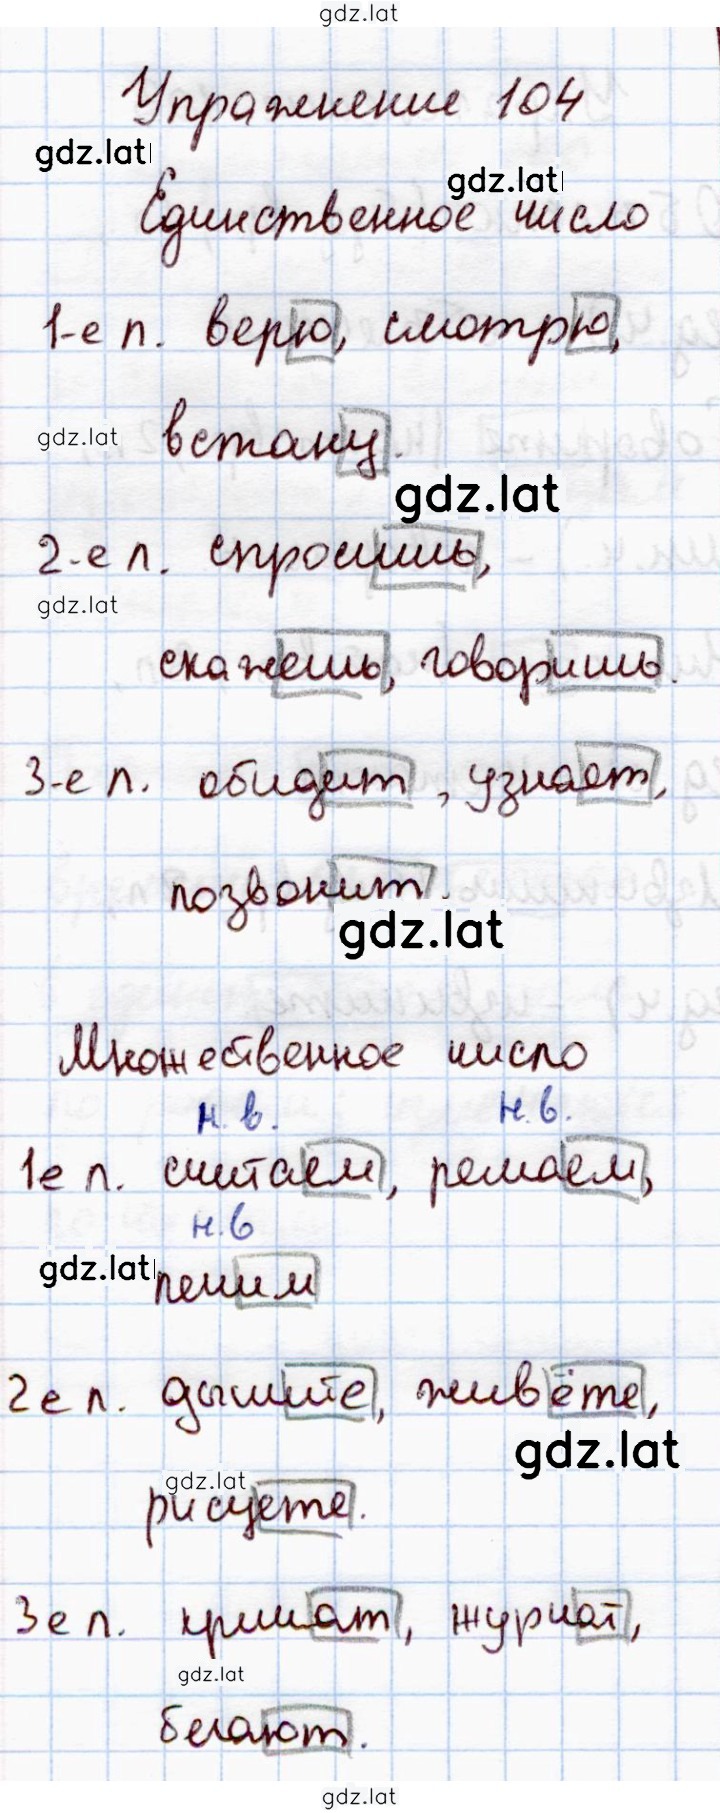 gdz.lat
Упражнение 104
gdz.lat
gdz.lat
Единственное число
1-е л. верю, смотрю,
gdz.lat
встану.
gdz.lat
2-е л. спросишь,
gdz.lat
скажешь, говоришь.
3-е л. обидит, узнает,
позвонит.
gdz.lat
Множественное число
н.в. н.в.
1е л. считаем, решаем,
н.в
gdz.lat
пешим
2е л. дышите, живёте,
gdz.lat
gdz.lat
рисуете.
3е л. кричат, журчат,
gdz.lat
бегают.
gdz.lat